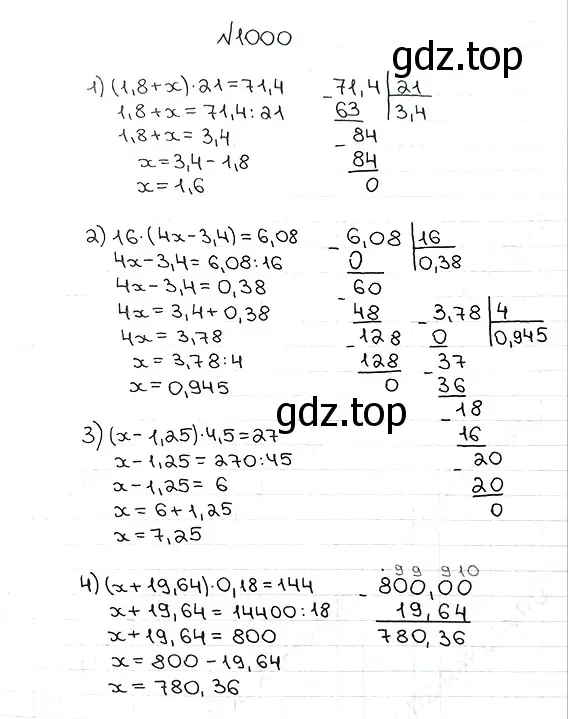 №1000
gdz.top
1) (1,8+x)·21=71,4
1,8+x=71,4:21
1,8+x=3,4
x=3,4-1,8
x=1,6
-71,4 | 21
63 | 3,4
-84
84
0
2) 16·(4x-3,4)=6,08
4x-3,4=6,08:16
4x-3,4=0,38
4x=3,4+0,38
4x=3,78
x=3,78:4
x=0,945
-6,08 | 16
0 | 0,38
-60
48
-128
128
0
-3,78 | 4
0 | 0,945
-37
36
-18
16
-20
20
0
gdz.top
3) (x-1,25)·4,5=27
x-1,25=270:45
x-1,25=6
x=6+1,25
x=7,25
4) (x+19,64)·0,18=144
x+19,64=14400:18
x+19,64=800
x=800-19,64
x=780,36
. 9 9 9 10
-800,00
19,64
780,36